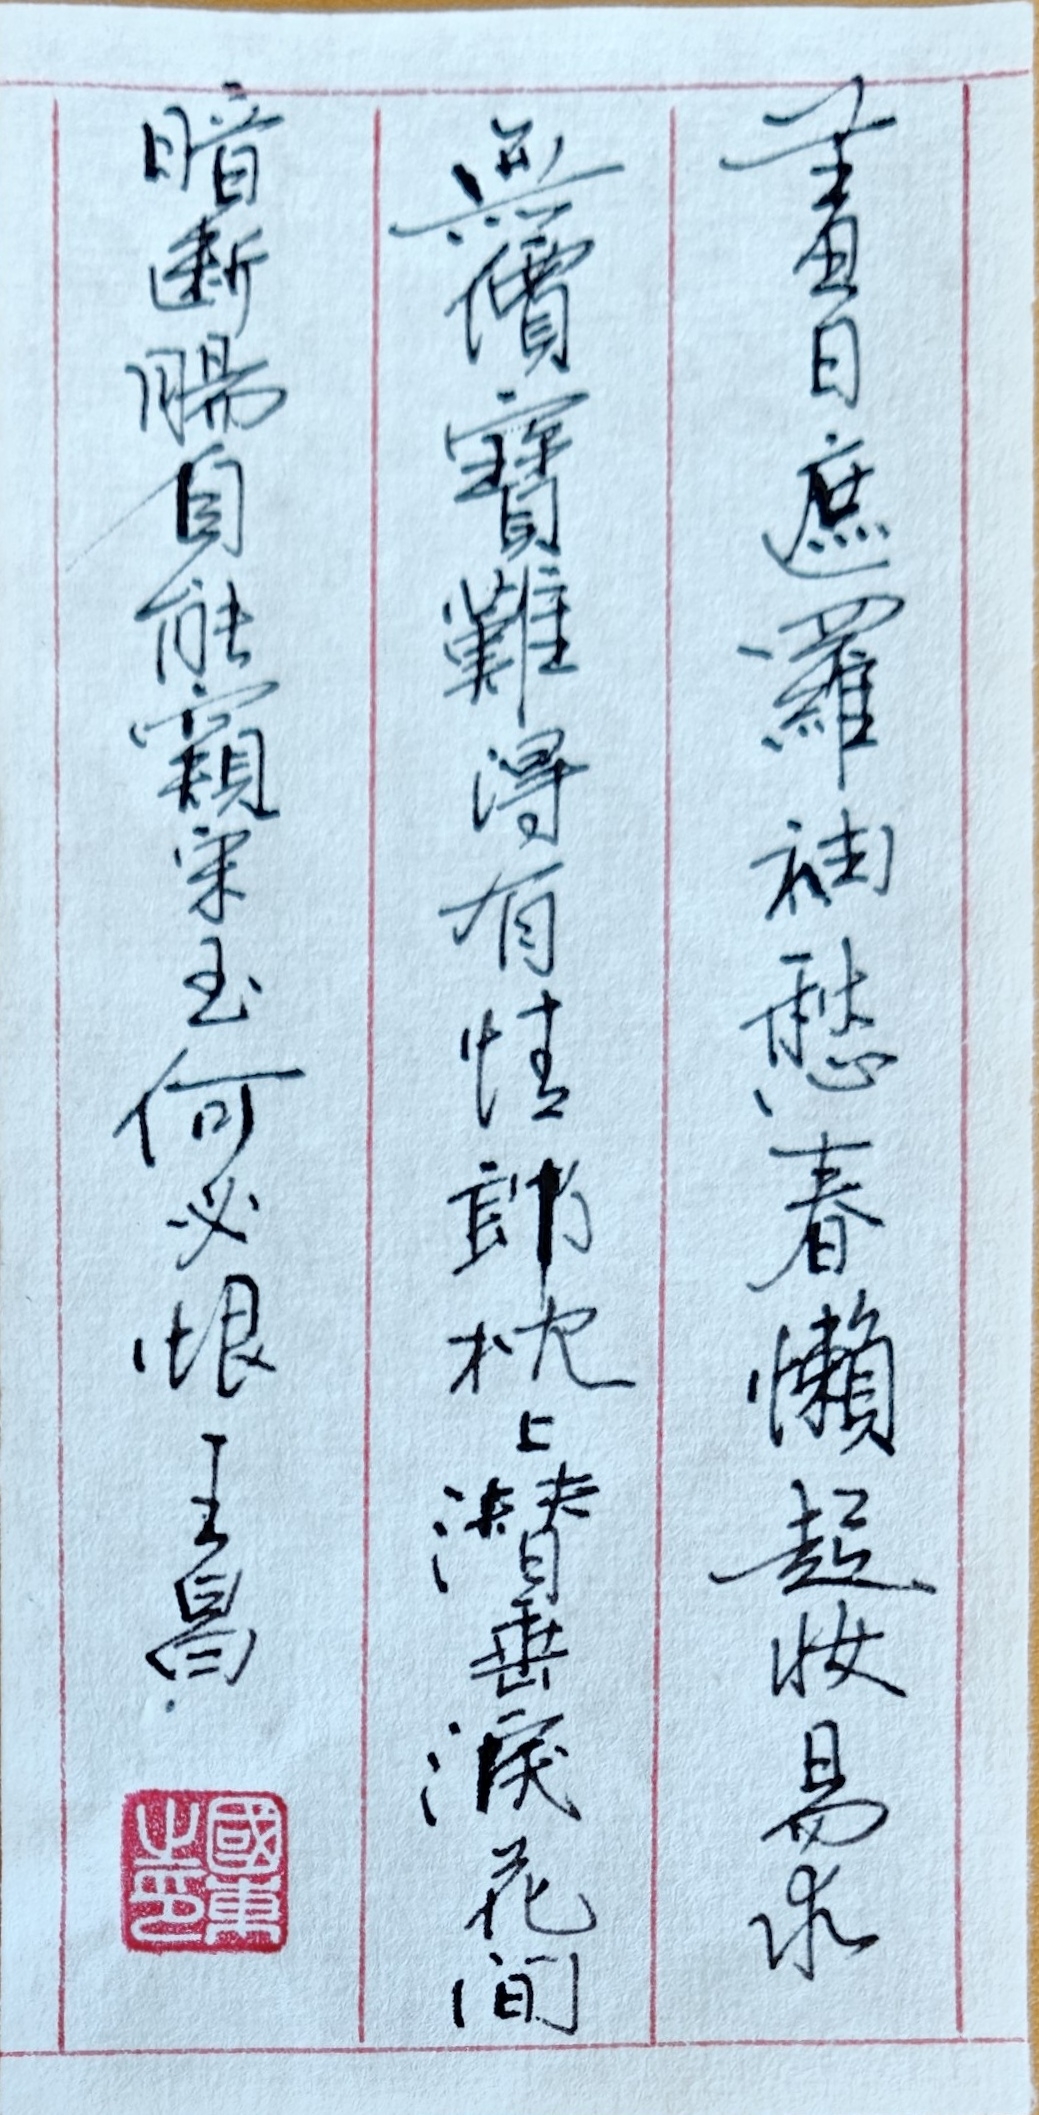 羞日遮羅袖愁春懶起妆易求
無價寶難得有情郎枕上潜垂淚花间
暗断腸自能窺宋玉何必恨王昌
國東之印